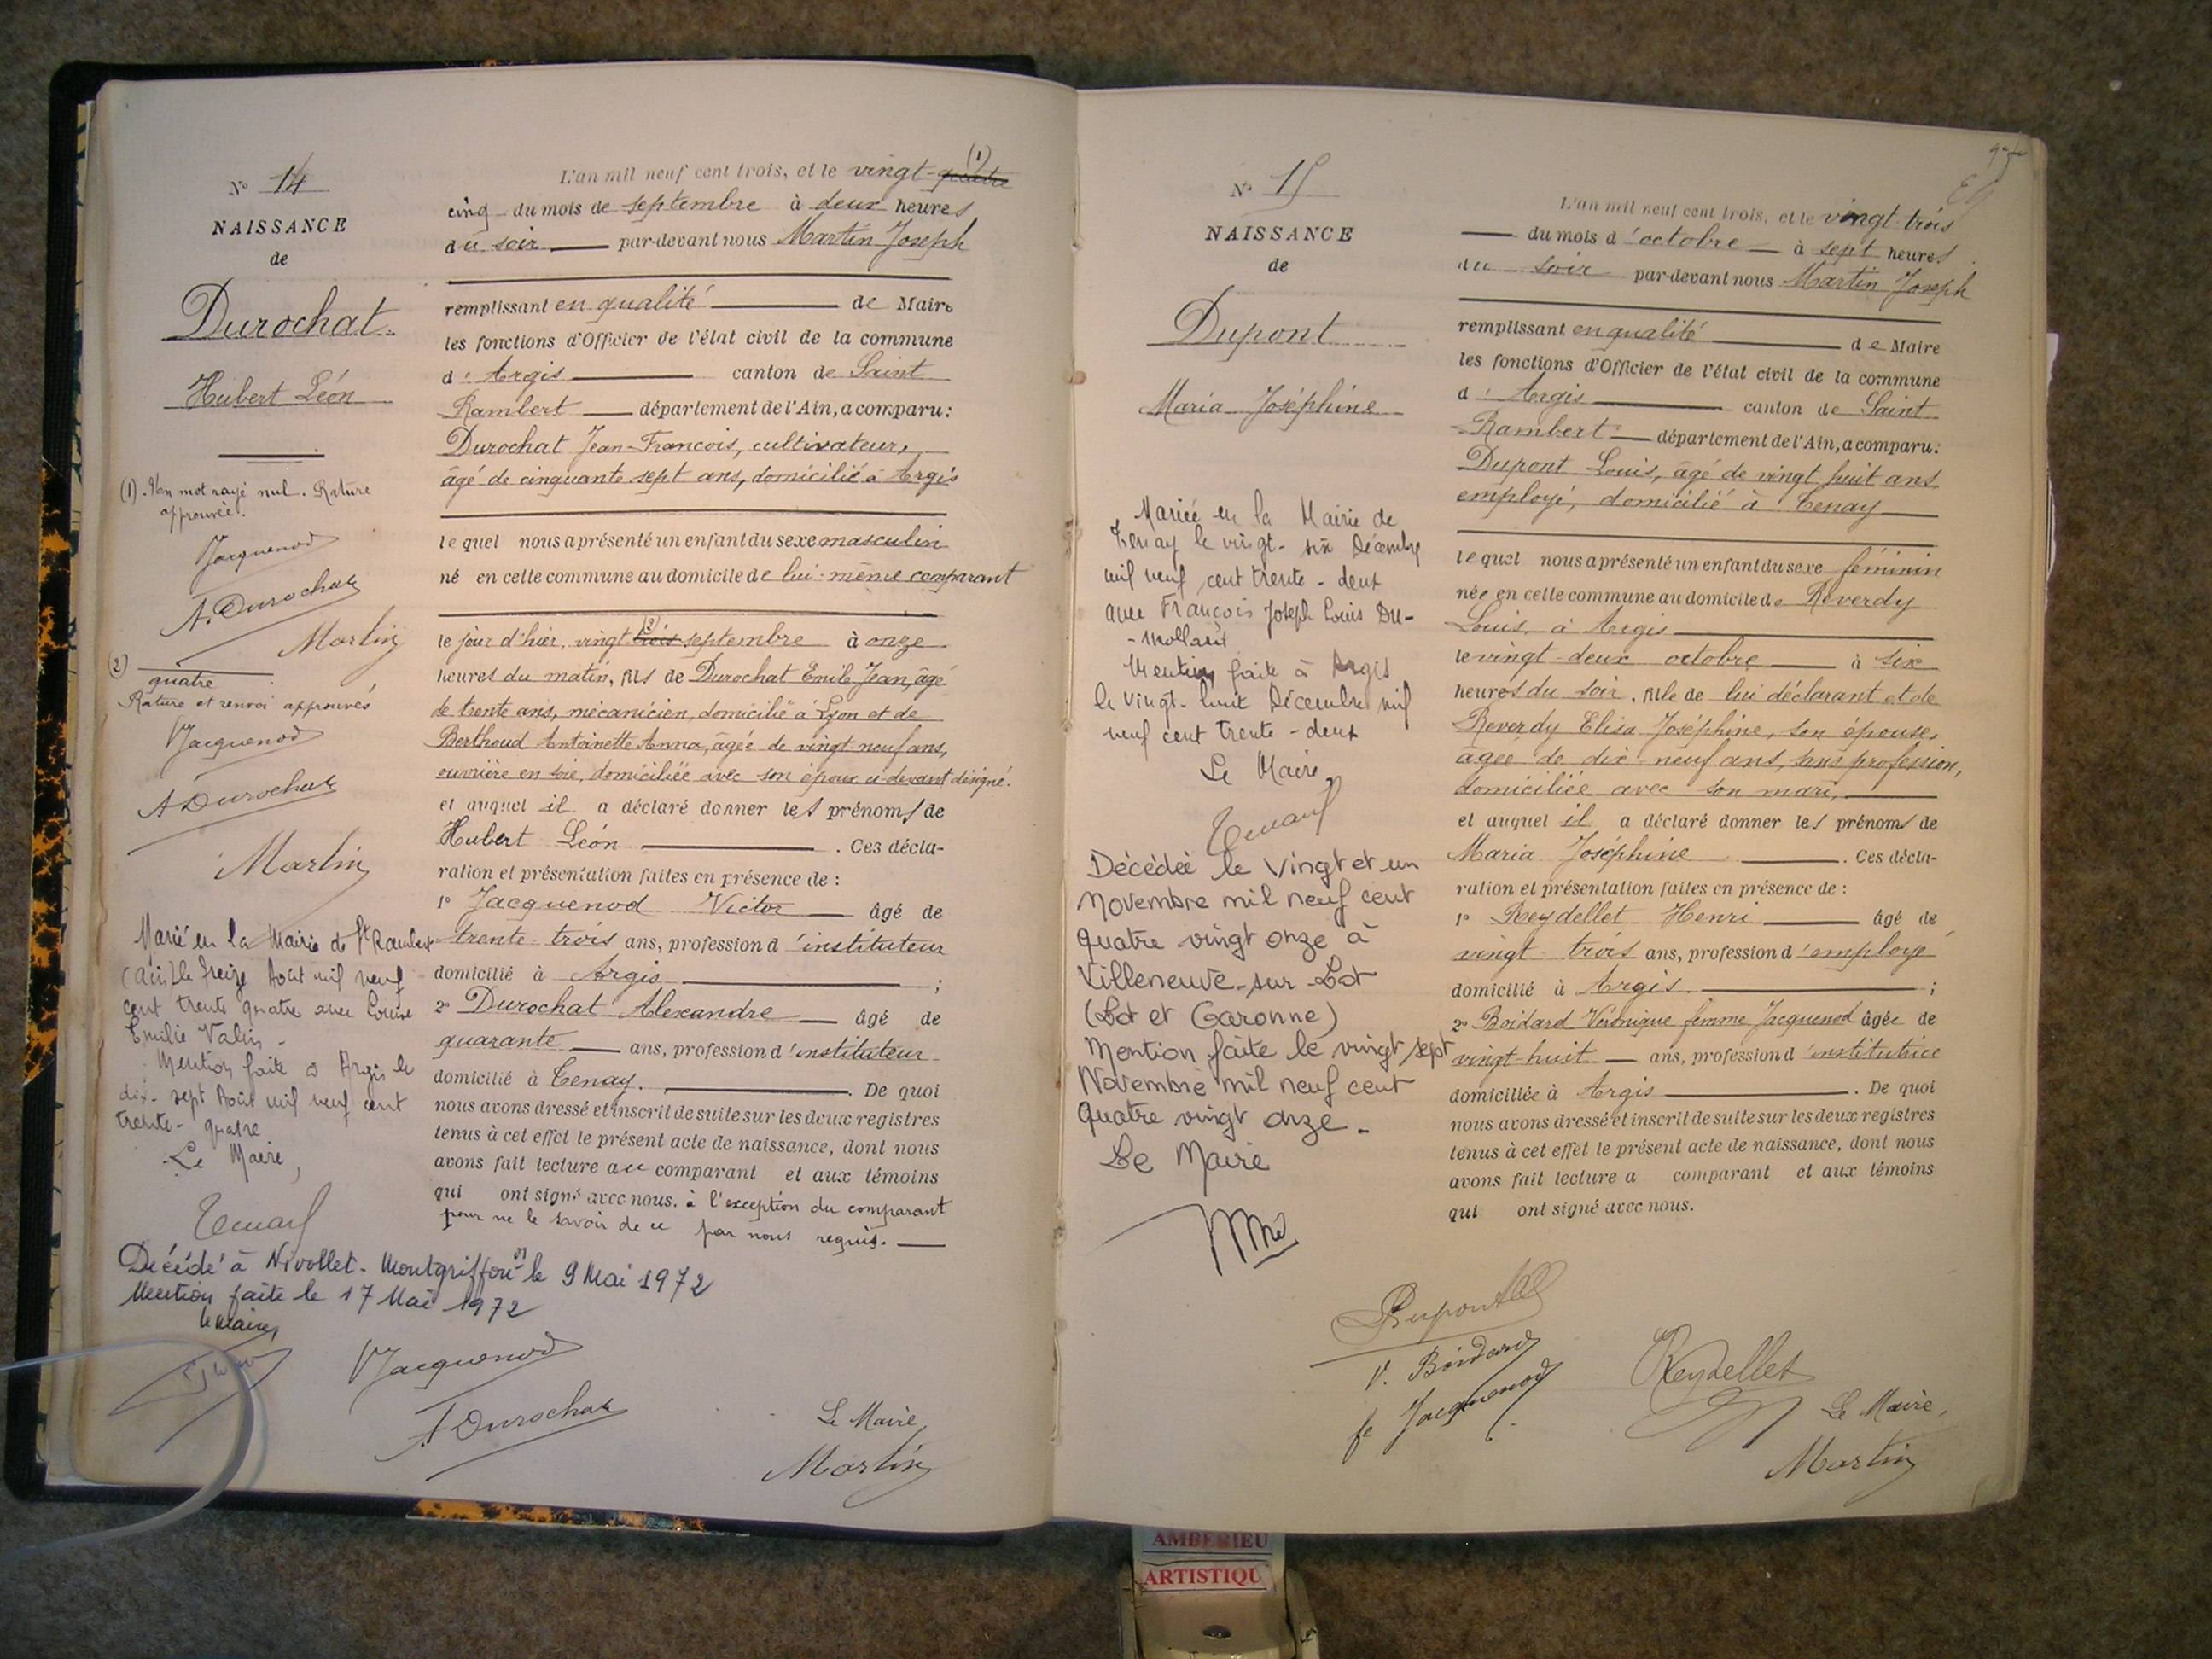 N° 14
NAISSANCE
de
Durochat
Hubert Léon
(1). Un mot rayé nul. Rature
approuvée.
Jacquenod
A. Durochat
Martin
(2)
quatre
Rature et renvoi approuvés
Jacquenod
A Durochat
Martin
Marié en la Mairie de St Rambert
(Ain) le treize Août mil neuf
cent trente quatre avec Louise
Emilie Valin -
Mention faite à Argis le
dix-sept Août mil neuf cent
trente-quatre
Le Maire,
Décédé à Nivollet-Montgriffon le 9 Mai 1972
Mention faite le 17 Mai 1972
le Maire,
L'an mil neuf cent trois, et le vingt-quatre (1)
cinq du mois de septembre à deux heures
du soir par-devant nous Martin Joseph
remplissant en qualité de Maire
les fonctions d'Officier de l'état civil de la commune
d'Argis canton de Saint
Rambert département de l'Ain, a comparu:
Durochat Jean-François, cultivateur,
âgé de cinquante sept ans, domicilié à Argis
lequel nous a présenté un enfant du sexe masculin
né en cette commune au domicile de lui-même comparant
le jour d'hier, vingt trois (2) septembre à onze
heures du matin, fils de Durochat Emile Jean, âgé
de trente ans, mécanicien, domicilié à Lyon et de
Berthoud Antoinette Anna, âgée de vingt-neuf ans,
ouvrière en soie, domiciliée avec son époux ci-devant désigné.
et auquel il a déclaré donner les prénoms de
Hubert Léon . Ces décla-
ration et présentation faites en présence de :
1° Jacquenod Victor âgé de
trente-trois ans, profession d'instituteur
domicilié à Argis ;
2° Durochat Alexandre âgé de
quarante ans, profession d'instituteur
domicilié à Tenay. . De quoi
nous avons dressé et inscrit de suite sur les deux registres
tenus à cet effet le présent acte de naissance, dont nous
avons fait lecture au comparant et aux témoins
qui ont signé avec nous. à l'exception du comparant
pour ne le savoir de ce par nous requis.
Jacquenod
A Durochat
Le Maire,
Martin
N° 15
NAISSANCE
de
Dupont
Maria Joséphine
Mariée en la Mairie de
Tenay le vingt-six Décembre
mil neuf cent trente-deux
avec François Joseph Louis Du-
-mollard
Mention faite à Argis
le vingt-huit Décembre mil
neuf cent trente-deux
Le Maire,
Décédée le Vingt et un
Novembre mil neuf cent
quatre vingt onze à
Villeneuve-sur-Lot
(Lot et Garonne)
Mention faite le vingt sept
Novembre mil neuf cent
quatre vingt onze.
Le Maire
L'an mil neuf cent trois, et le vingt-trois
du mois d'octobre à sept heures
du soir par-devant nous Martin Joseph
remplissant en qualité de Maire
les fonctions d'Officier de l'état civil de la commune
d'Argis canton de Saint
Rambert département de l'Ain, a comparu:
Dupont Louis, âgé de vingt huit ans
employé, domicilié à Tenay
lequel nous a présenté un enfant du sexe féminin
née en cette commune au domicile de Reverdy
Louis, à Argis
le vingt-deux octobre à six
heures du soir, fille de lui déclarant et de
Reverdy Elisa Joséphine, son épouse,
âgée de dix neuf ans, sans profession,
domiciliée avec son mari,
et auquel il a déclaré donner les prénoms de
Maria Joséphine . Ces décla-
ration et présentation faites en présence de :
1° Reydellet Henri âgé de
vingt trois ans, profession d'employé
domicilié à Argis ;
2° Boidard Véronique femme Jacquenod âgée de
vingt-huit ans, profession d'institutrice
domiciliée à Argis . De quoi
nous avons dressé et inscrit de suite sur les deux registres
tenus à cet effet le présent acte de naissance, dont nous
avons fait lecture a comparant et aux témoins
qui ont signé avec nous.
Dupont
V. Boidard
fe Jacquenod
Reydellet
Le Maire,
Martin
AMBERIEU
ARTISTIQU